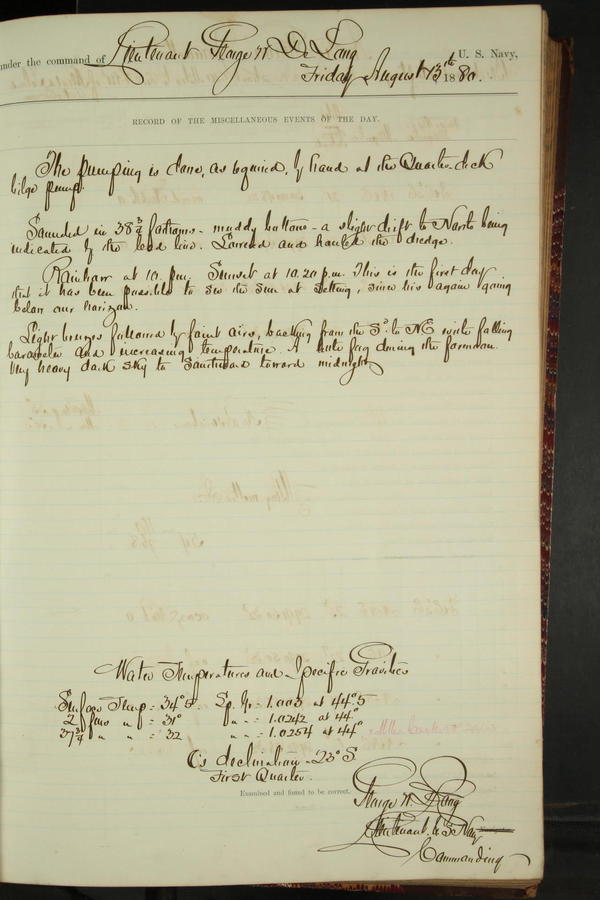 under the command of Lieutenant George W. De Long U. S. Navy,
Friday August 13th 1880.
RECORD OF THE MISCELLANEOUS EVENTS OF THE DAY.
The pumping is done, as required, by hand at the Quarter-deck
bilge pump.
Sounded in 38 3/4 fathoms - muddy bottom - a slight drift to North being
indicated by the lead line. Lowered and hauled the dredge.
Rainbow at 10. p.m. Sunset at 10.20 p.m. This is the first day
that it has been possible to see the sun at setting, since his again going
below our horizon.
Light breezes followed by faint airs, backing from the Sd to NE with falling
barometer and increasing temperature. A white fog during the forenoon.
Very heavy dark sky to Southward toward midnight.
Water Temperatures and Specific Gravities
Surface Temp = 34°.5 Sp. Gr = 1.003 at 44°.5
2 fms " " = 31° " " = 1.0242 at 44°
37 3/4 " " = 32 " " = 1.0254 at 44°
C's declination - 23° S
First Quarter.
Examined and found to be correct.
George W. De Long
Lieutenant U.S. Navy
Commanding